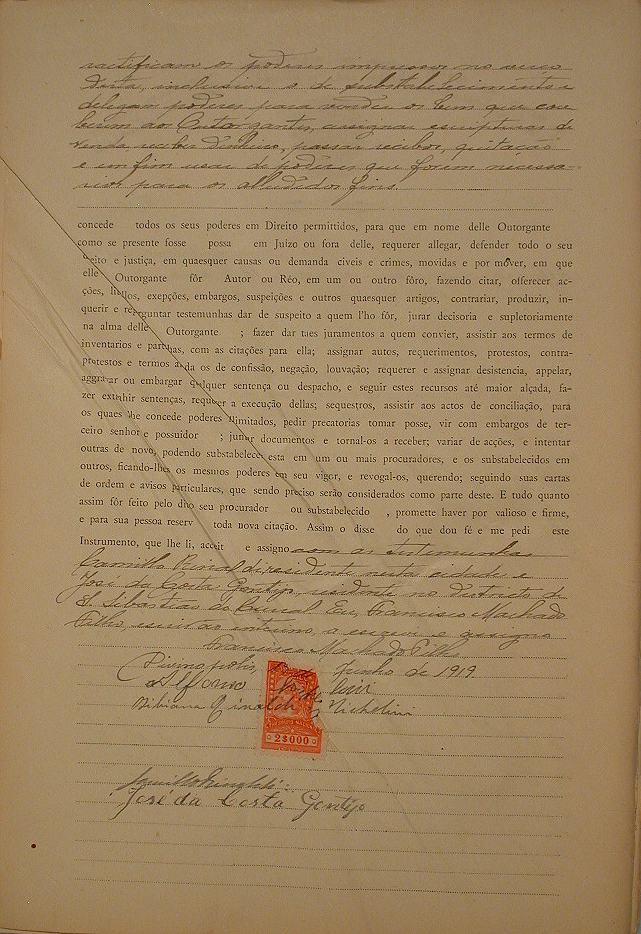 ractificam os poderes impressos no verso
desta, inclusive o de substabelecimento e
delegam poderes para vender os bens que cou
berem ao Outorgantes, assignar escripturas de
venda, receber dinheiro, passar recibos, quitação
e em fim usar de poderes que forem necessa-
rios para os alludidos fins.
concede todos os seus poderes em Direito permittidos, para que em nome delle Outorgante
como se presente fosse possa em Juizo ou fora delle, requerer allegar, defender todo o seu
direito e justiça, em quaesquer causas ou demanda civeis e crimes, movidas e por mover, em que
elle Outorgante fôr Autor ou Réo, em um ou outro fôro, fazendo citar, offerecer ac-
ções, libellos, exepções, embargos, suspeições e outros quaesquer artigos, contrariar, produzir, in-
querir e reperguntar testemunhas dar de suspeito a quem l'ho fôr, jurar decisoria e supletoriamente
na alma delle Outorgante ; fazer dar taes juramentos a quem convier, assistir aos termos de
inventarios e partilhas, com as citações para ella; assignar autos, requerimentos, protestos, contra-
protestos e termos ainda os de confissão, negação, louvação; requerer e assignar desistencia, appelar,
aggravar ou embargar qualquer sentença ou despacho, e seguir estes recursos até maior alçada, fa-
zer extrahir sentenças, requerer a execução dellas; sequestros, assistir aos actos de conciliação, para
os quaes lhe concede poderes illimitados, pedir precatorias tomar posse, vir com embargos de ter-
ceiro senhor e possuidor ; juntar documentos e tornal-os a receber; variar de acções, e intentar
outras de novo, podendo substabelecer esta em um ou mais procuradores, e os substabelecidos em
outros, ficando-lhes os mesmos poderes em seu vigor, e revogal-os, querendo; seguindo suas cartas
de ordem e avisos particulares, que sendo preciso serão considerados como parte deste. E tudo quanto
assim fôr feito pelo dito seu procurador ou substabelecido , promette haver por valioso e firme,
e para sua pessoa reserv toda nova citação. Assim o disse do que dou fé e me pedi este
Instrumento, que lhe li, acceit e assigno com as testemunhas
Camillo Rinaldi, residente nesta cidade e
José da Costa Gontijo, residente no districto de
S. Sebastião do Curral. Eu, Francisco Machado
Filho, escrivão interino, a escrevi e assigno
Francisco Machado Filho
Divinopolis, Junho de 1919
Alfonso Nichelini
Bibiana Rinaldi Nichelini
2$000
Camillo Rinaldi
José da Costa Gontijo